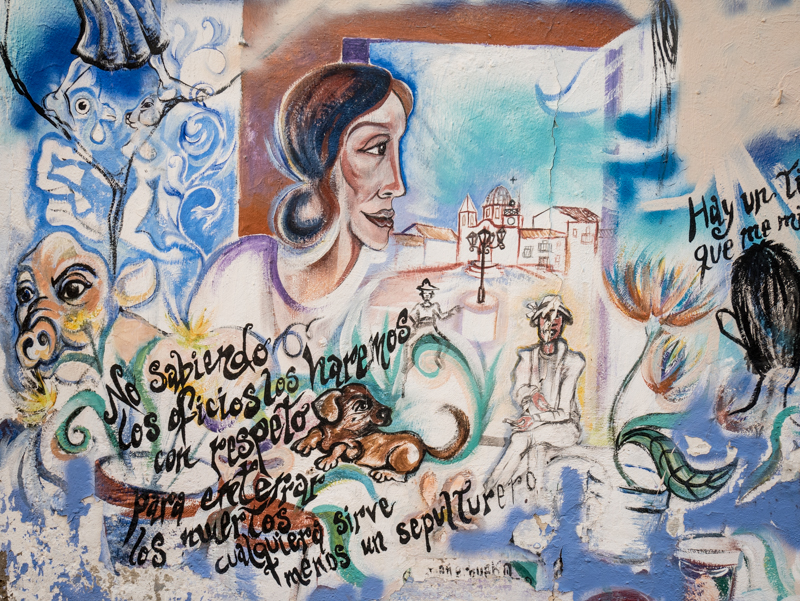 No sabiendo
los oficios los haremos
con respeto
para enterrar
los muertos
cualquiera sirve
+ menos un sepulturero
Hay un
que me